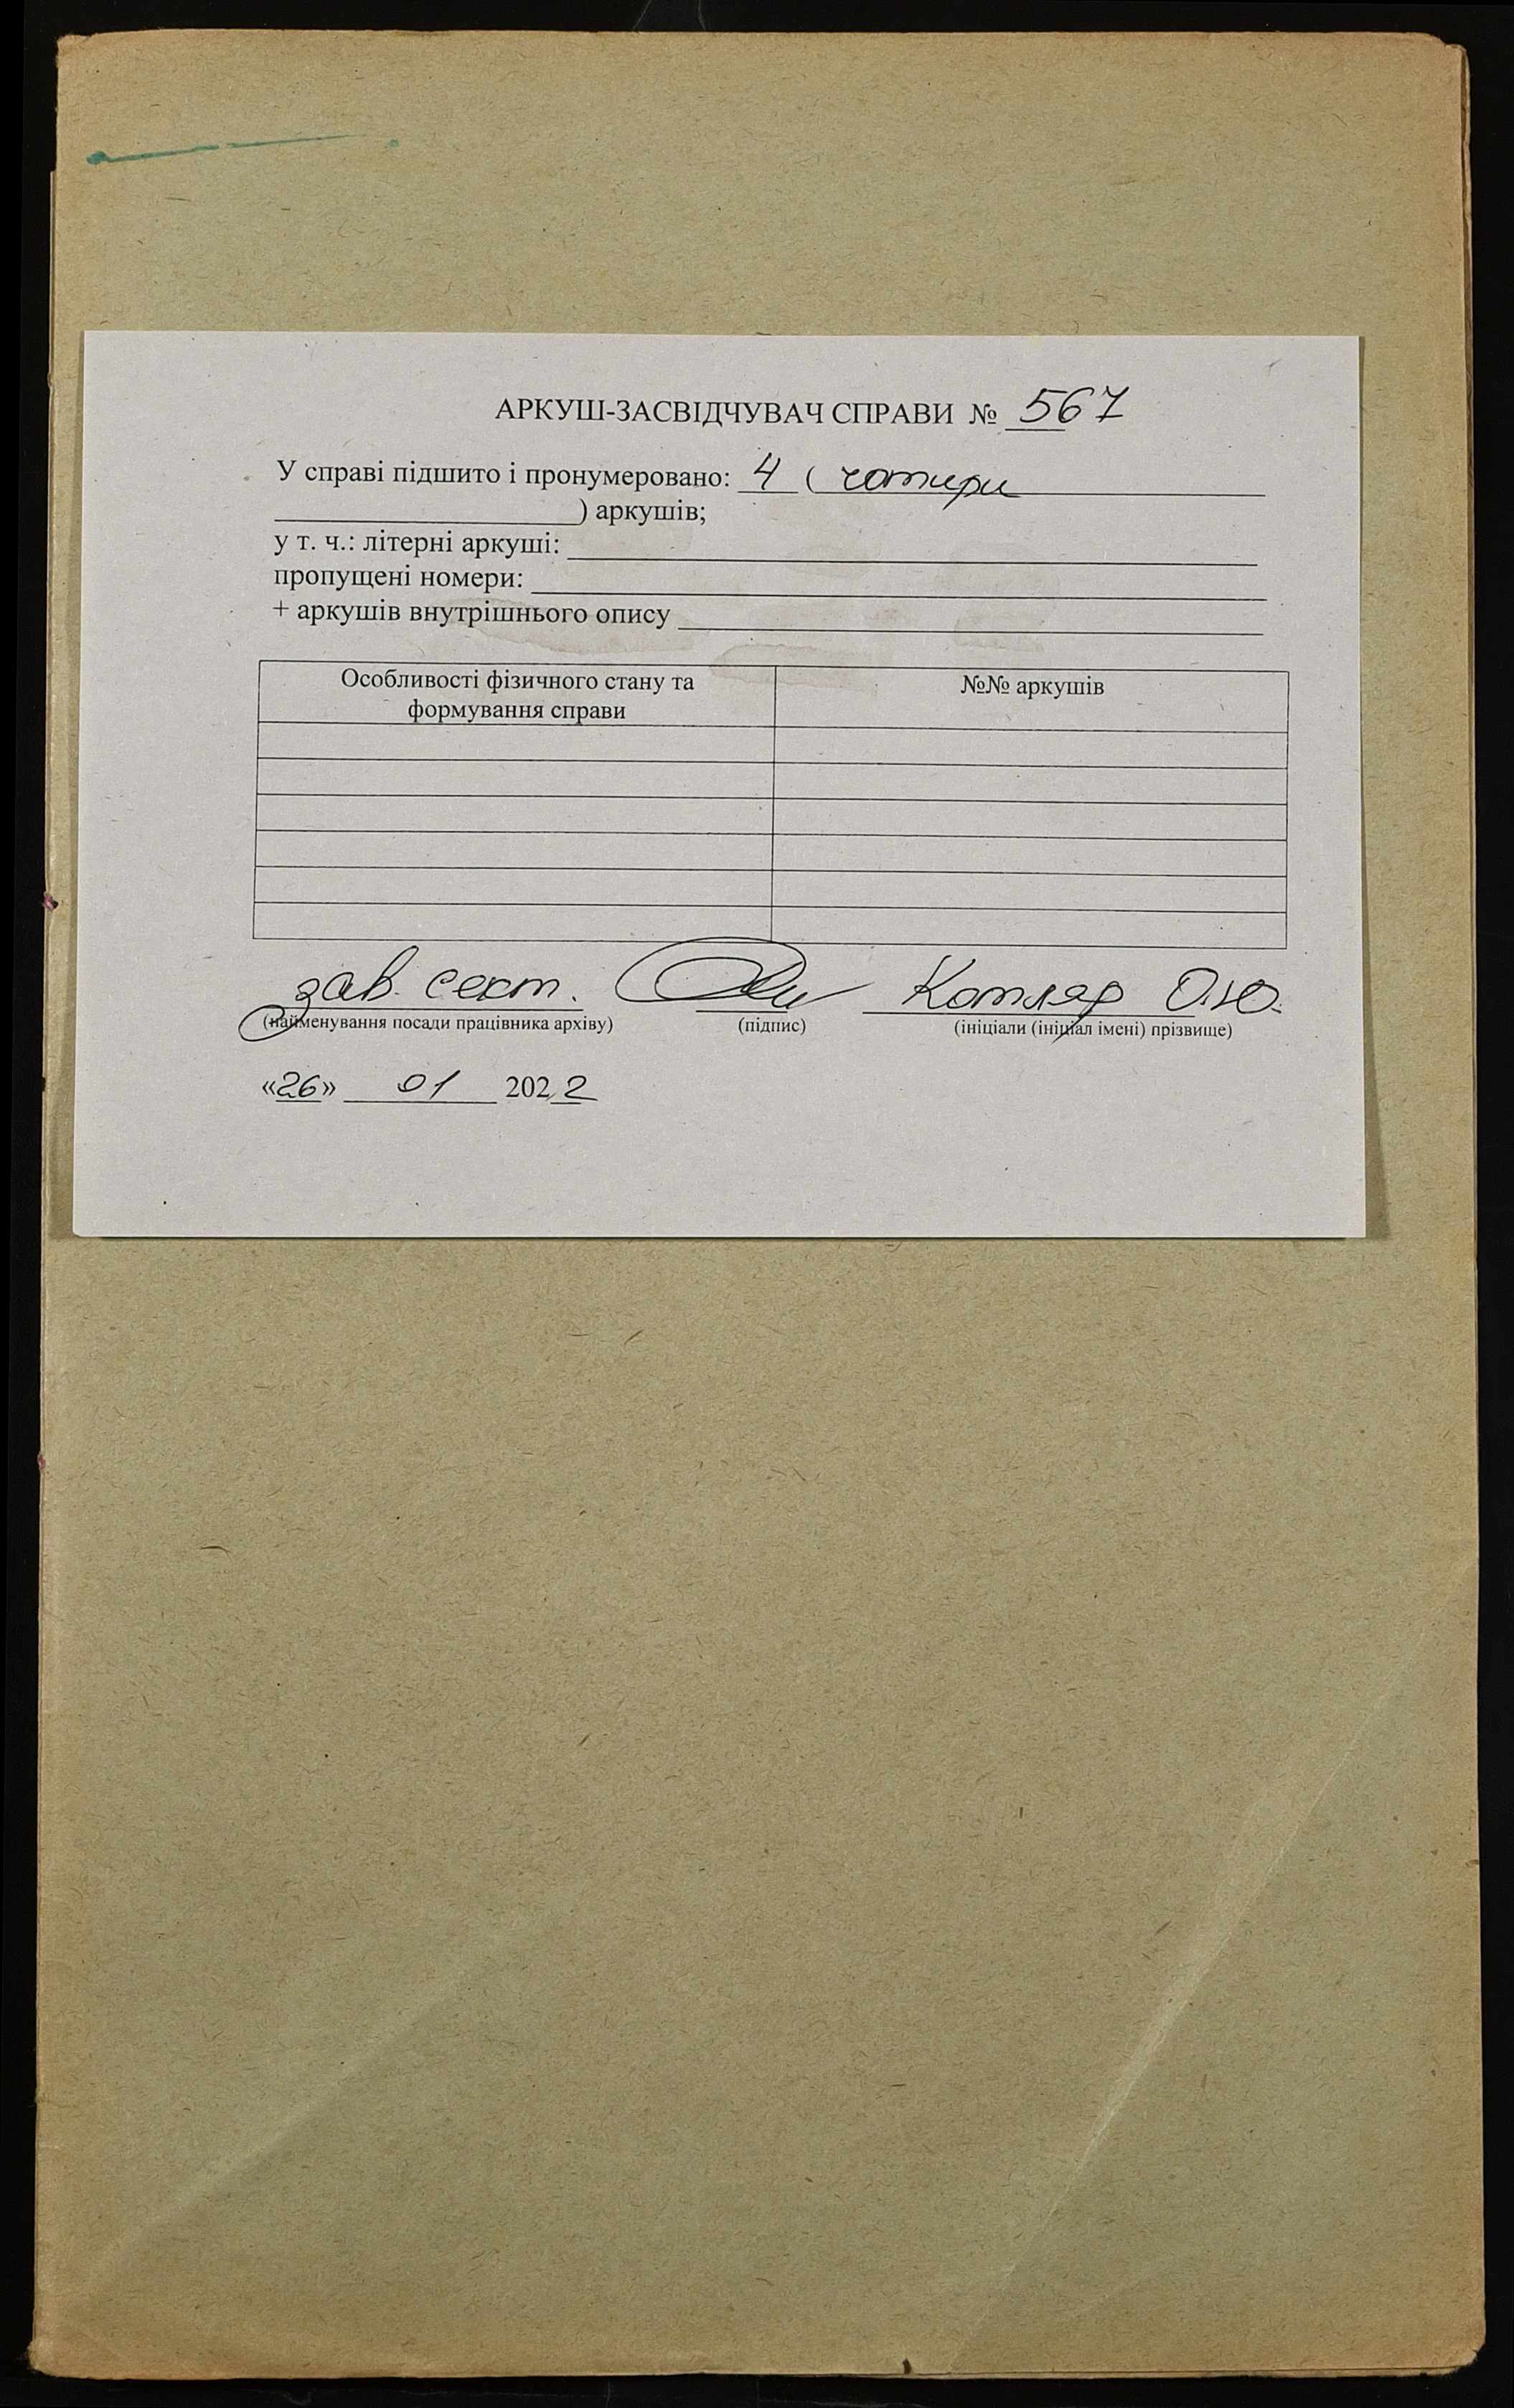 АРКУШ-ЗАСВІДЧУВАЧ СПРАВИ № 567
У справі підшито і пронумеровано: 4 ( чотири
) аркушів;
у т. ч.: літерні аркуші:
пропущені номери:
+ аркушів внутрішнього опису
Особливості фізичного стану та
формування справи
№№ аркушів
зав. сект. Котляр О.Ю.
(найменування посади працівника архіву) (підпис) (ініціали (ініціал імені) прізвище)
«26» 01 2022